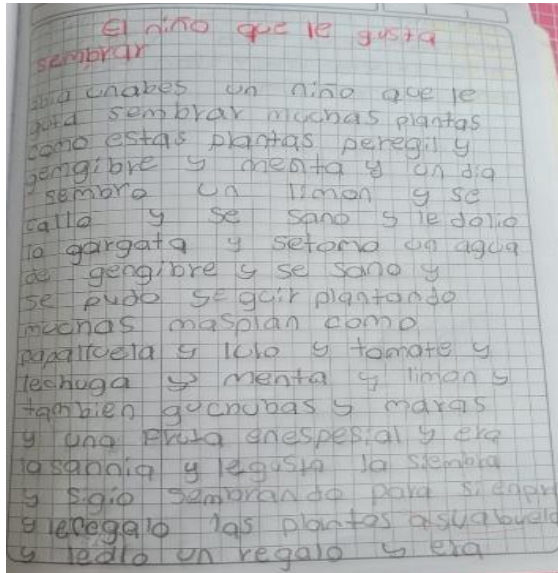 El niño que le gusta
sembrar
abia unabes un niño que le
gusta sembrar muchas plantas
como estas plantas peregil y
gengibre y menta y un dia
sembro un limon y se
callo y se sano y le dolio
la gargata y setomo un agua
de gengibre y se sano y
se pudo seguir plantando
muchas masplan como
papalluela y lulo y tomate y
lechuga y menta y limon y
tambien guchubas y maras
y una fruta enespesial y era
lasandia y legusta la siembra
y sigio sembrando para siempr
y leregalo las plantas asuabuela
y ledio un regalo y era